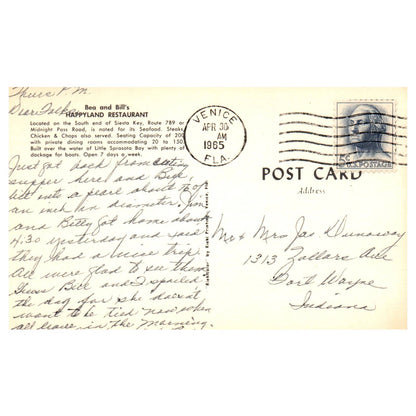 Thurs P.M.
Dear Folks,
Bea and Bill's
HAPPYLAND RESTAURANT
Located on the South end of Siesta Key, Route 789 or
Midnight Pass Road, is noted for its Seafood. Steaks,
Chicken & Chops also served. Seating Capacity of 200
with private dining rooms accommodating 20 to 150.
Built over the water of Little Sarasota Bay with plenty of
dockage for boats. Open 7 days a week.
Just got back from eating
supper here and Bill
bit into a pearl about 1/8 of
an inch in diameter. Jim
and Betty got home about
4:30 yesterday and said
they had a nice trip.
All were glad to see them
Guess Bill and I spoiled
the dog for she doesn't
want to be tied now when
all leave in the morning.
VENICE
APR 30
AM
1965
FLA.
U.S. POSTAGE
POST CARD
Address
Mr & Mrs Jas Dunaway
1313 Zollars Ave
Fort Wayne
Indiana